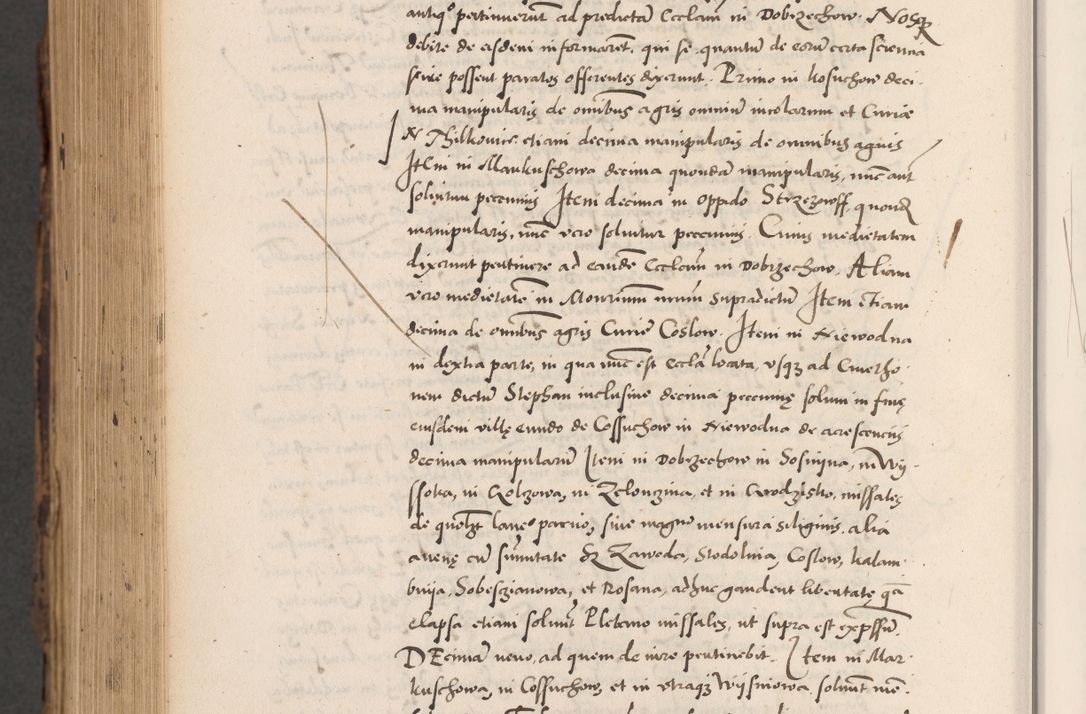 antiqᵒ pertinuerũt ad predictã Eccleam in Dobrzechow. Nosqꝫ
debite de eisdem informarent, qui se quantũ de eorũ certa sciencia
scire possent paratos offerentes dixerunt. Primo in Kosuchow deci-
ma manipularis de omībus agris omniũ incolarum et Curiae
N Zhilkovice etiam decima manipularis de omnibus agris
Item in Markuschowa decima quondã manipularis, nunc aut
solvitur pecuniis Item decima in oppido Strzezoff, quond
manipularis, nũc vero solvitur pecuniis. Cuius medietatem
dixerunt pertinere ad eandẽ Eccleam in Dobrzechow. Aliam
vero medietatẽ in Monrium unum supradictũ Item etiam
decima de omībus agris Curiẽ Coslow. Item in Niewodna
in dextra parte, in qua nũc est Eccla locata, usqꝫ ad Cmetho-
nem dictũ Stephan inclusive decima pecunię solum in finę
eiusdem villę eundo de Cossuchow in Niewodna de acrescenciis
decima manipulariũ Item in Dobrzechow in Sosnina, in Wy-
ssoka, in Golzowa, in Zelonzina, et in Grodzisko, missales
de quolꝫt laneᵒ parvio, sive magne mensura siliginis, alia
avenę cũ sum̃itate Sꝫ Zaweda, Stodolnia, Coslow, kalam-
bnija, Sobesczianowa, et Rosana, adhuc gaudent libertatę qã
elapsa etiam solvunt Plebano missales, ut supra est expssũ.
DEcimã vero, ad quem de iure pertinebit. Item in Mar-
kuschowa, in Cossuchow, et in utraqꝫ Wysniowa solvunt mẽ-